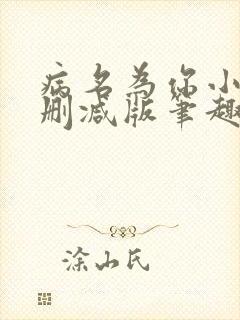 病名为你小
删减版笔趣
涂山氏